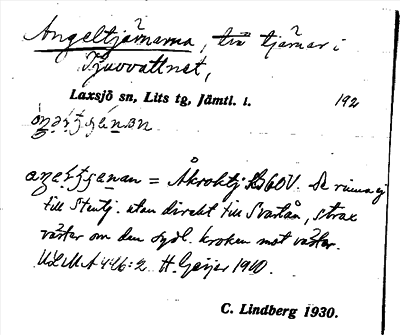 Angeltjärnarna, två tjärnar i
Tjuvvattnet,
Laxsjö sn, Lits tg, Jämtl. l. 192
= Åkroktj 60V. De rinna ej
till Stentj. utan direkt till Svartån, strax
väster om den sydl. kroken mot väster.
ULMA 446:2 H. Geijer 1910.
C. Lindberg 1930.